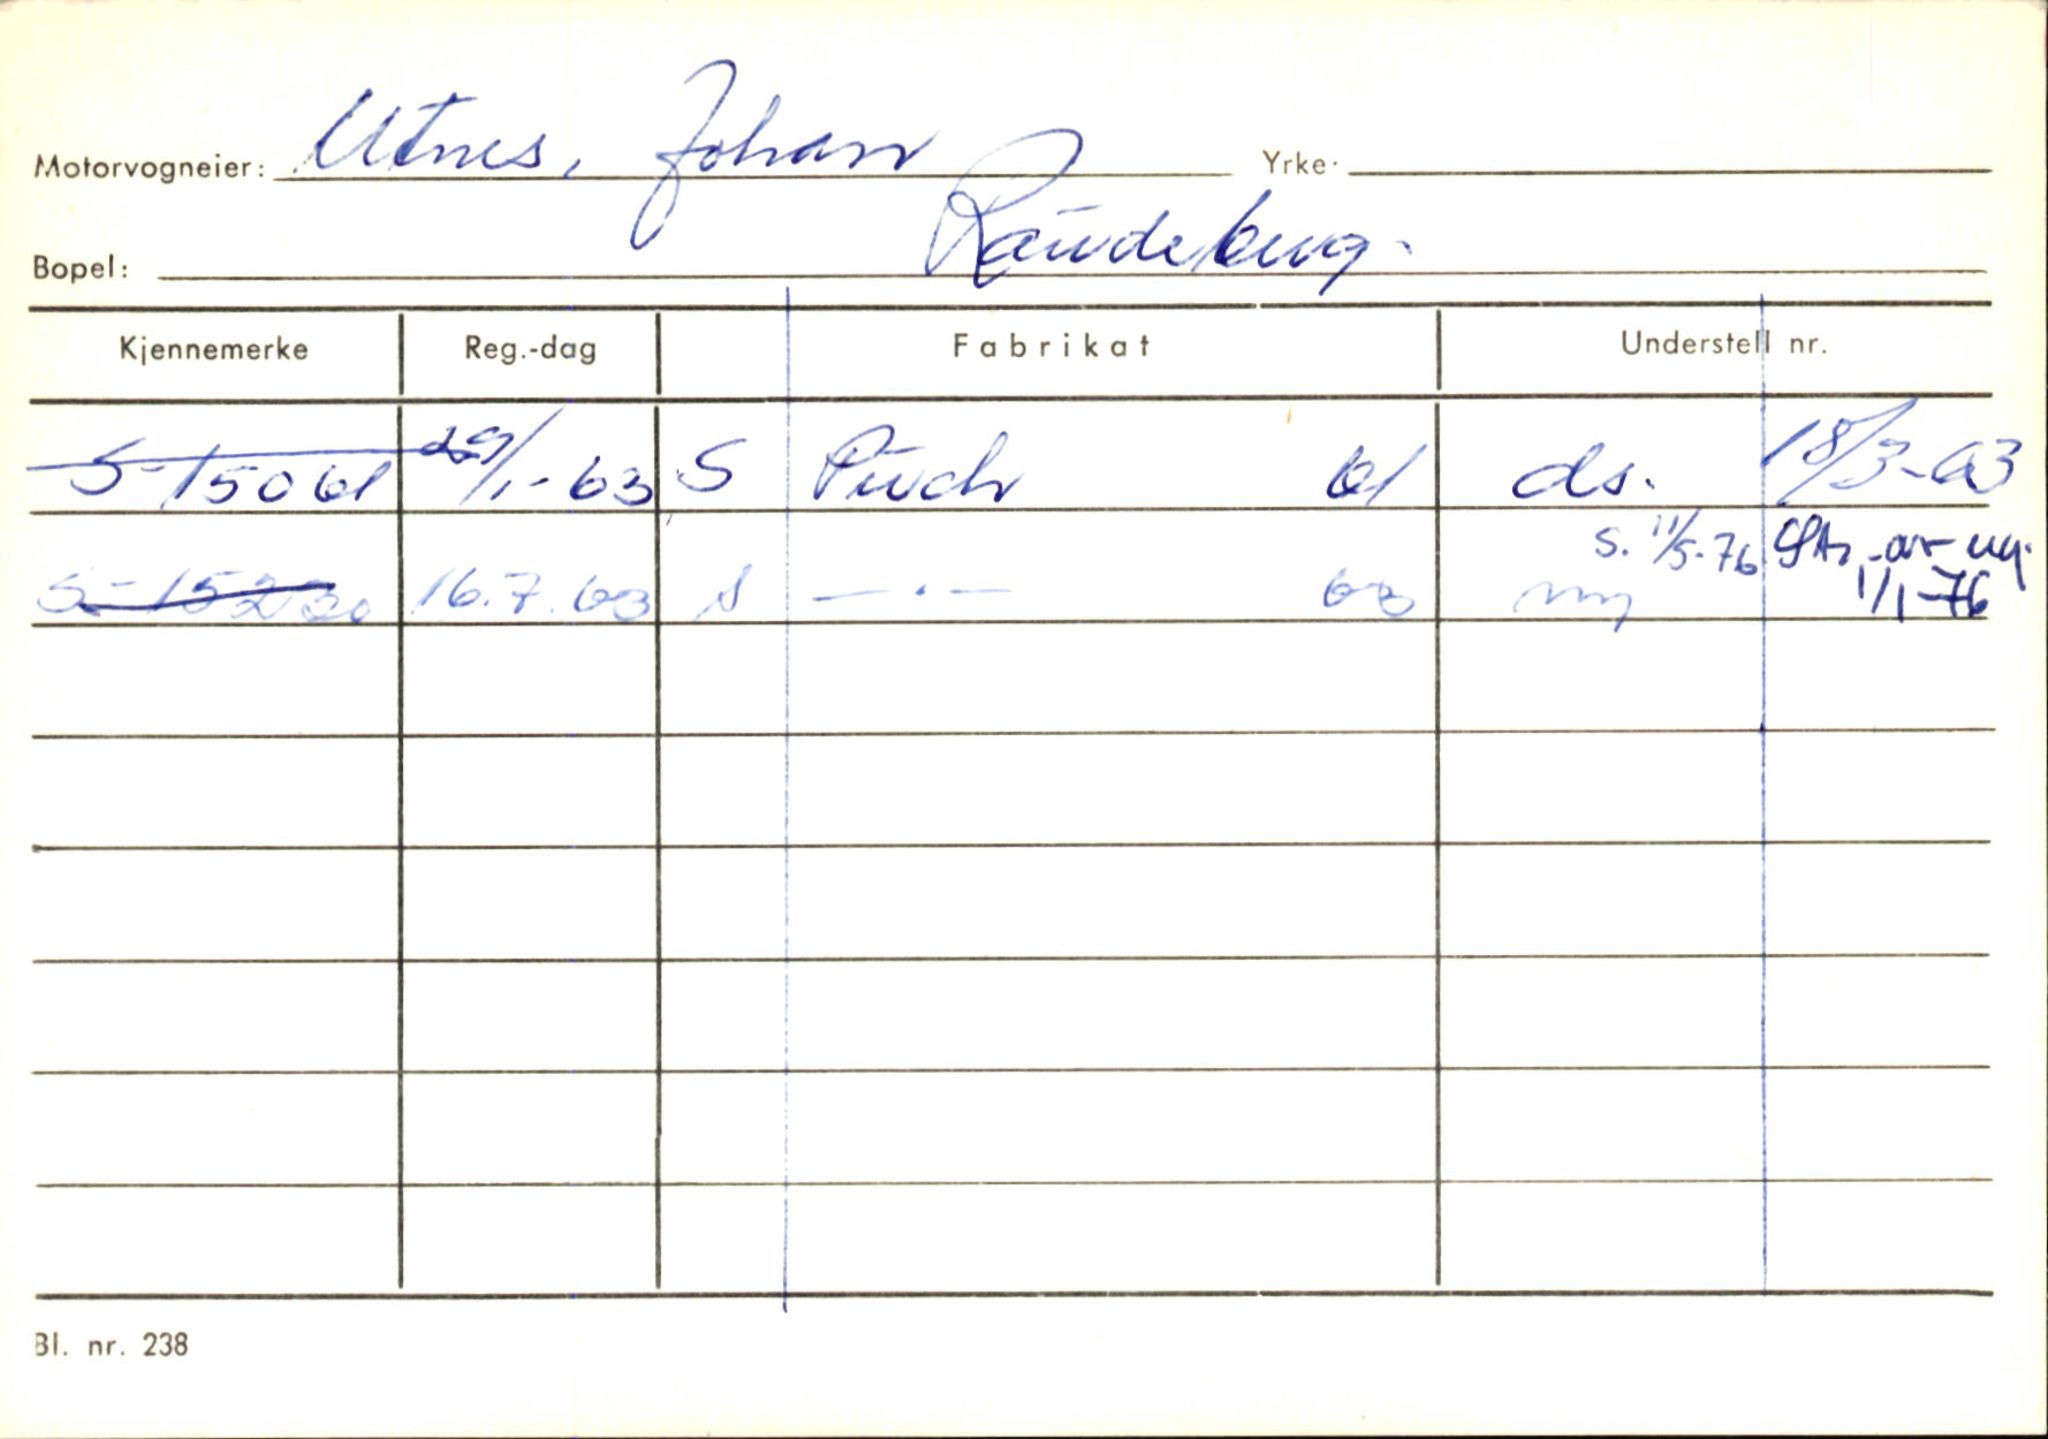 Motorvogneier: Utnes, Johan Yrke:
Bopel: Raudeberg.
Kjennemerke Reg.-dag Fabrikat Understell nr.
S-15061 29/1-63 S Puch 61 ds. 18/3-63
s. 11/5-76 Str. av reg.
S-15230 16.7.63 S —·— 63 ny 1/1-76
Bl. nr. 238